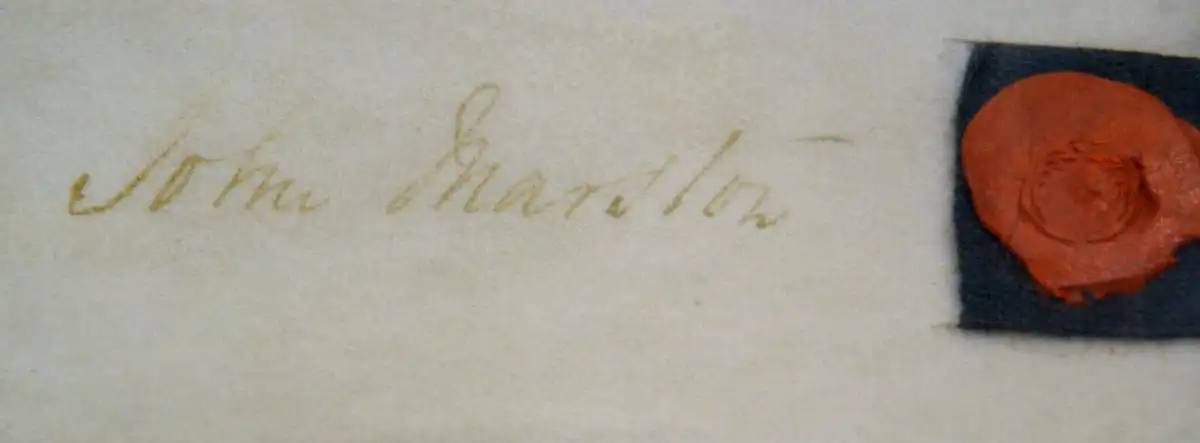 John Marston